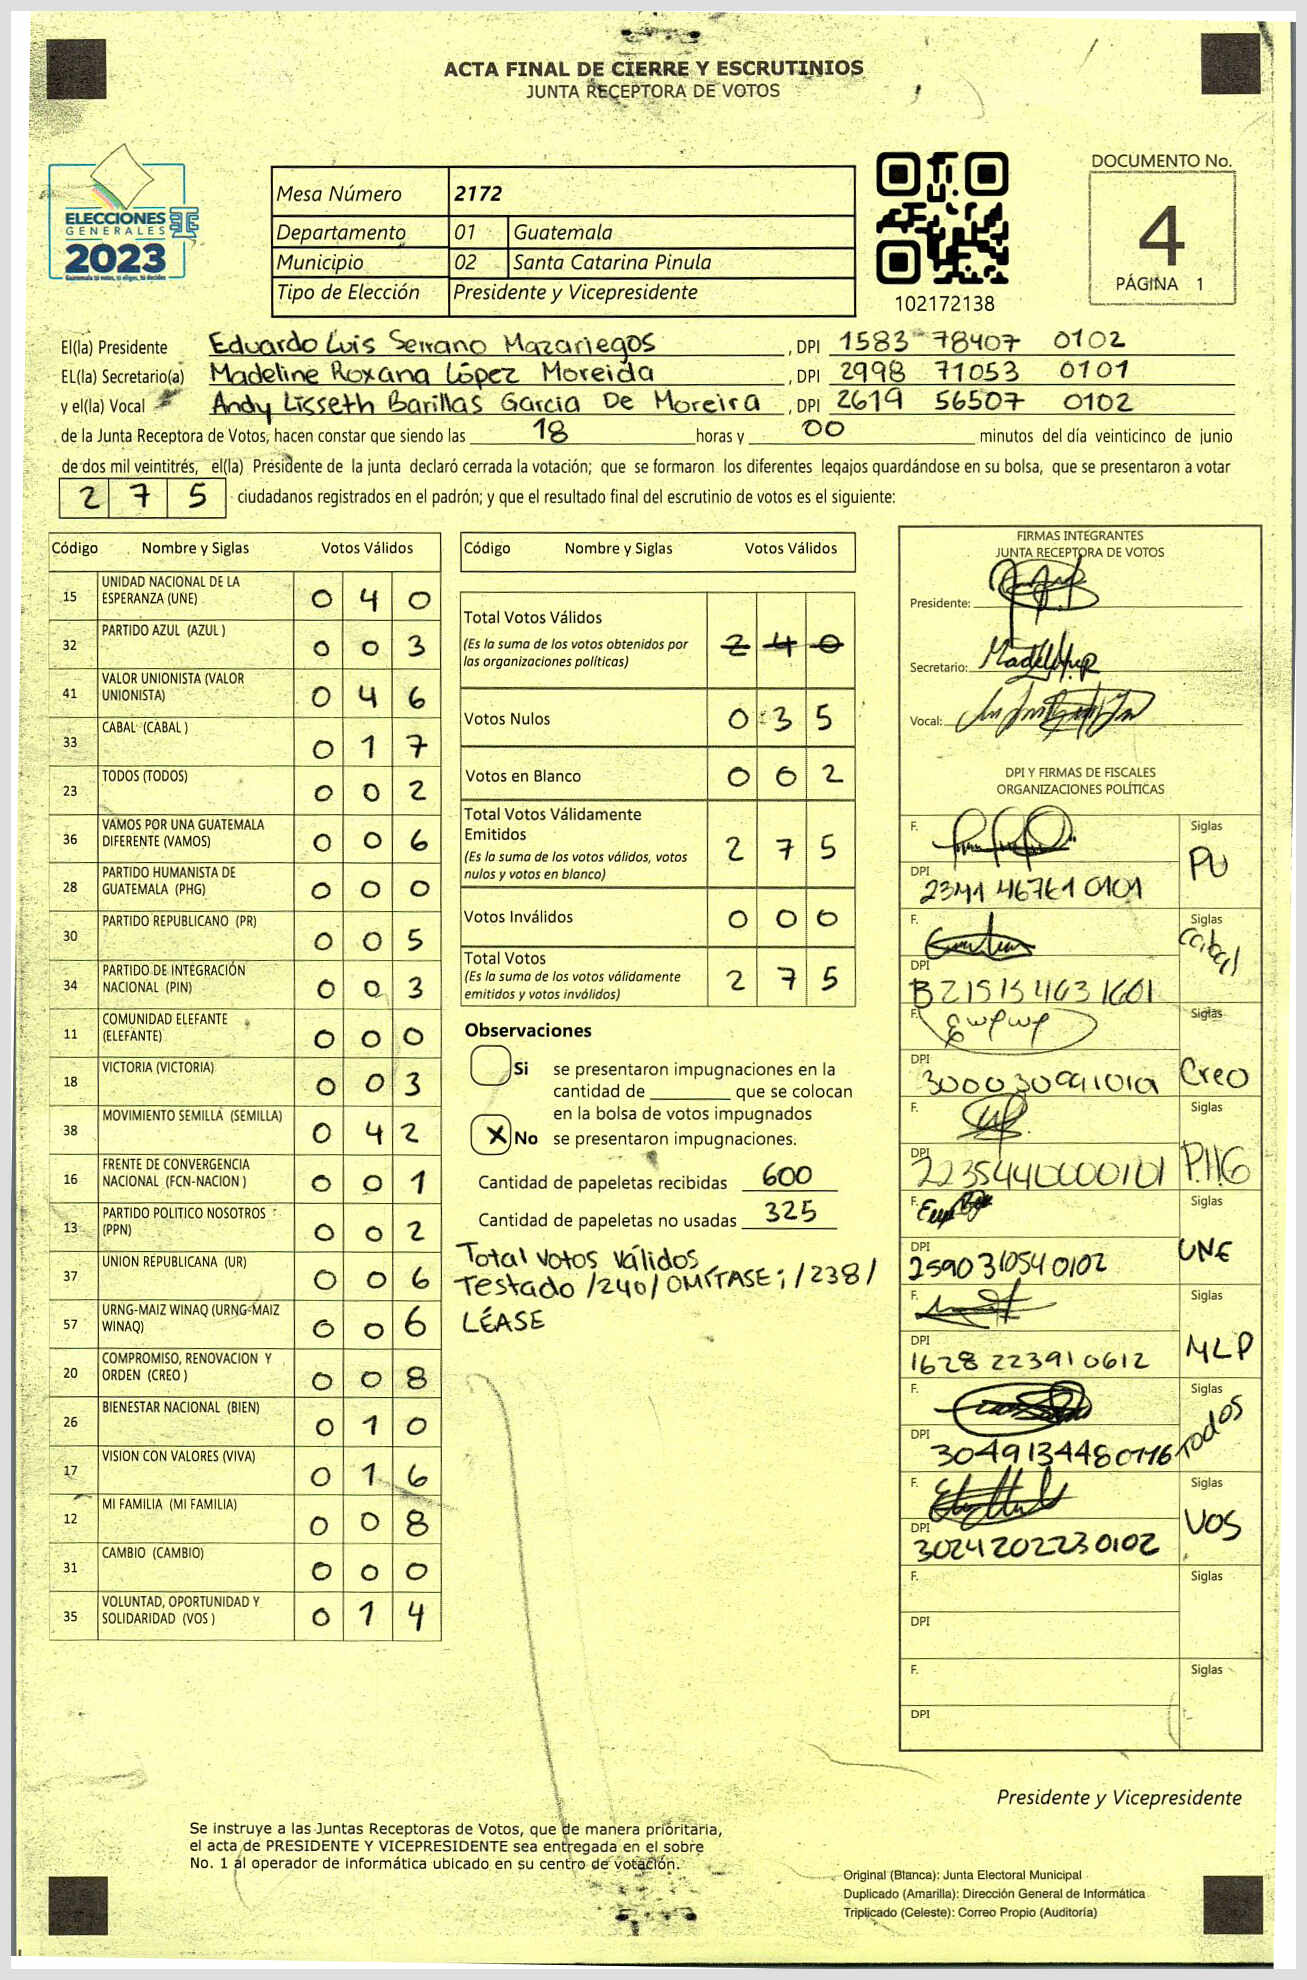 ACTA FINAL DE CIERRE Y ESCRUTINIOS
JUNTA RECEPTORA DE VOTOS
ELECCIONES
GENERALES
2023
Guatemala tú votas, tú eliges, tú decides
Mesa Número 2172
Departamento 01 Guatemala
Municipio 02 Santa Catarina Pinula
Tipo de Elección Presidente y Vicepresidente
102172138
DOCUMENTO No.
4
PÁGINA 1
El(la) Presidente Eduardo Luis Serrano Mazariegos, DPI 1583 78407 0102
EL(la) Secretario(a) Madeline Roxana López Moreida, DPI 2998 71053 0101
y el(la) Vocal Andy Lisseth Barillas Garcia De Moreira, DPI 2619 56507 0102
de la Junta Receptora de Votos, hacen constar que siendo las 18 horas y 00 minutos del día veinticinco de junio
de dos mil veintitrés, el(la) Presidente de la junta declaró cerrada la votación; que se formaron los diferentes legajos quardándose en su bolsa, que se presentaron a votar
2 7 5 ciudadanos registrados en el padrón; y que el resultado final del escrutinio de votos es el siguiente:
Código Nombre y Siglas Votos Válidos
15 UNIDAD NACIONAL DE LA ESPERANZA (UNE) 0 4 0
32 PARTIDO AZUL (AZUL ) 0 0 3
41 VALOR UNIONISTA (VALOR UNIONISTA) 0 4 6
33 CABAL (CABAL ) 0 1 7
23 TODOS (TODOS) 0 0 2
36 VAMOS POR UNA GUATEMALA DIFERENTE (VAMOS) 0 0 6
28 PARTIDO HUMANISTA DE GUATEMALA (PHG) 0 0 0
30 PARTIDO REPUBLICANO (PR) 0 0 5
34 PARTIDO DE INTEGRACIÓN NACIONAL (PIN) 0 0 3
11 COMUNIDAD ELEFANTE (ELEFANTE) 0 0 0
18 VICTORIA (VICTORIA) 0 0 3
38 MOVIMIENTO SEMILLA (SEMILLA) 0 4 2
16 FRENTE DE CONVERGENCIA NACIONAL (FCN-NACION ) 0 0 1
13 PARTIDO POLITICO NOSOTROS (PPN) 0 0 2
37 UNION REPUBLICANA (UR) 0 0 6
57 URNG-MAIZ WINAQ (URNG-MAIZ WINAQ) 0 0 6
20 COMPROMISO, RENOVACION Y ORDEN (CREO ) 0 0 8
26 BIENESTAR NACIONAL (BIEN) 0 1 0
17 VISION CON VALORES (VIVA) 0 1 6
12 MI FAMILIA (MI FAMILIA) 0 0 8
31 CAMBIO (CAMBIO) 0 0 0
35 VOLUNTAD, OPORTUNIDAD Y SOLIDARIDAD (VOS ) 0 1 4
Código Nombre y Siglas Votos Válidos
Total Votos Válidos 2 4 0
(Es la suma de los votos obtenidos por
las organizaciones políticas)
Votos Nulos 0 3 5
Votos en Blanco 0 0 2
Total Votos Válidamente
Emitidos 2 7 5
(Es la suma de los votos válidos, votos
nulos y votos en blanco)
Votos Inválidos 0 0 0
Total Votos 2 7 5
(Es la suma de los votos válidamente
emitidos y votos inválidos)
Observaciones
Si se presentaron impugnaciones en la
cantidad de ________ que se colocan
en la bolsa de votos impugnados
X No se presentaron impugnaciones.
Cantidad de papeletas recibidas 600
Cantidad de papeletas no usadas 325
Total votos válidos
Testado /240/ OMÍTASE; /238/
LÉASE
FIRMAS INTEGRANTES
JUNTA RECEPTORA DE VOTOS
Presidente:
Secretario:
Vocal:
DPI Y FIRMAS DE FISCALES
ORGANIZACIONES POLÍTICAS
F. Siglas PU
DPI 2341 46761 0101
F. Siglas Cabal
DPI
F. Siglas Creo
DPI
F. Siglas P.H.G
DPI 2235440000101
F. Siglas UNE
DPI 2590310540102
F. Siglas MLP
DPI 1628 223910612
F. Siglas Todos
DPI
F. Siglas VOS
DPI 3024202230102
F. Siglas
DPI
F. Siglas
DPI
Presidente y Vicepresidente
Se instruye a las Juntas Receptoras de Votos, que de manera prioritaria,
el acta de PRESIDENTE Y VICEPRESIDENTE sea entregada en el sobre
No. 1 al operador de informática ubicado en su centro de votación.
Original (Blanca): Junta Electoral Municipal
Duplicado (Amarilla): Dirección General de Informática
Triplicado (Celeste): Correo Propio (Auditoría)